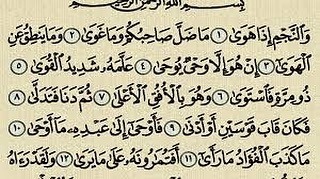 بِسْمِ اللَّهِ الرَّحْمَٰنِ الرَّحِيمِ
وَالنَّجْمِ إِذَا هَوَىٰ ١ مَا ضَلَّ صَاحِبُكُمْ وَمَا غَوَىٰ ٢ وَمَا يَنطِقُ عَنِ
الْهَوَىٰ ٣ إِنْ هُوَ إِلَّا وَحْيٌ يُوحَىٰ ٤ عَلَّمَهُ شَدِيدُ الْقُوَىٰ ٥
ذُو مِرَّةٍ فَاسْتَوَىٰ ٦ وَهُوَ بِالْأُفُقِ الْأَعْلَىٰ ٧ ثُمَّ دَنَا فَتَدَلَّىٰ ٨
فَكَانَ قَابَ قَوْسَيْنِ أَوْ أَدْنَىٰ ٩ فَأَوْحَىٰ إِلَىٰ عَبْدِهِ مَا أَوْحَىٰ ١٠
مَا كَذَبَ الْفُؤَادُ مَا رَأَىٰ ١١ أَفَتُمَارُونَهُ عَلَىٰ مَا يَرَىٰ ١٢ وَلَقَدْ رَآهُ